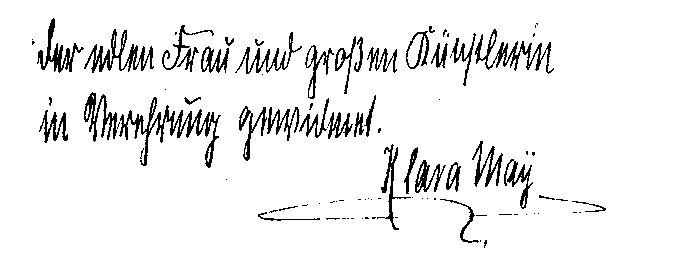 Der edlen Frau und großen Künstlerin
in Verehrung gewidmet.
Klara May